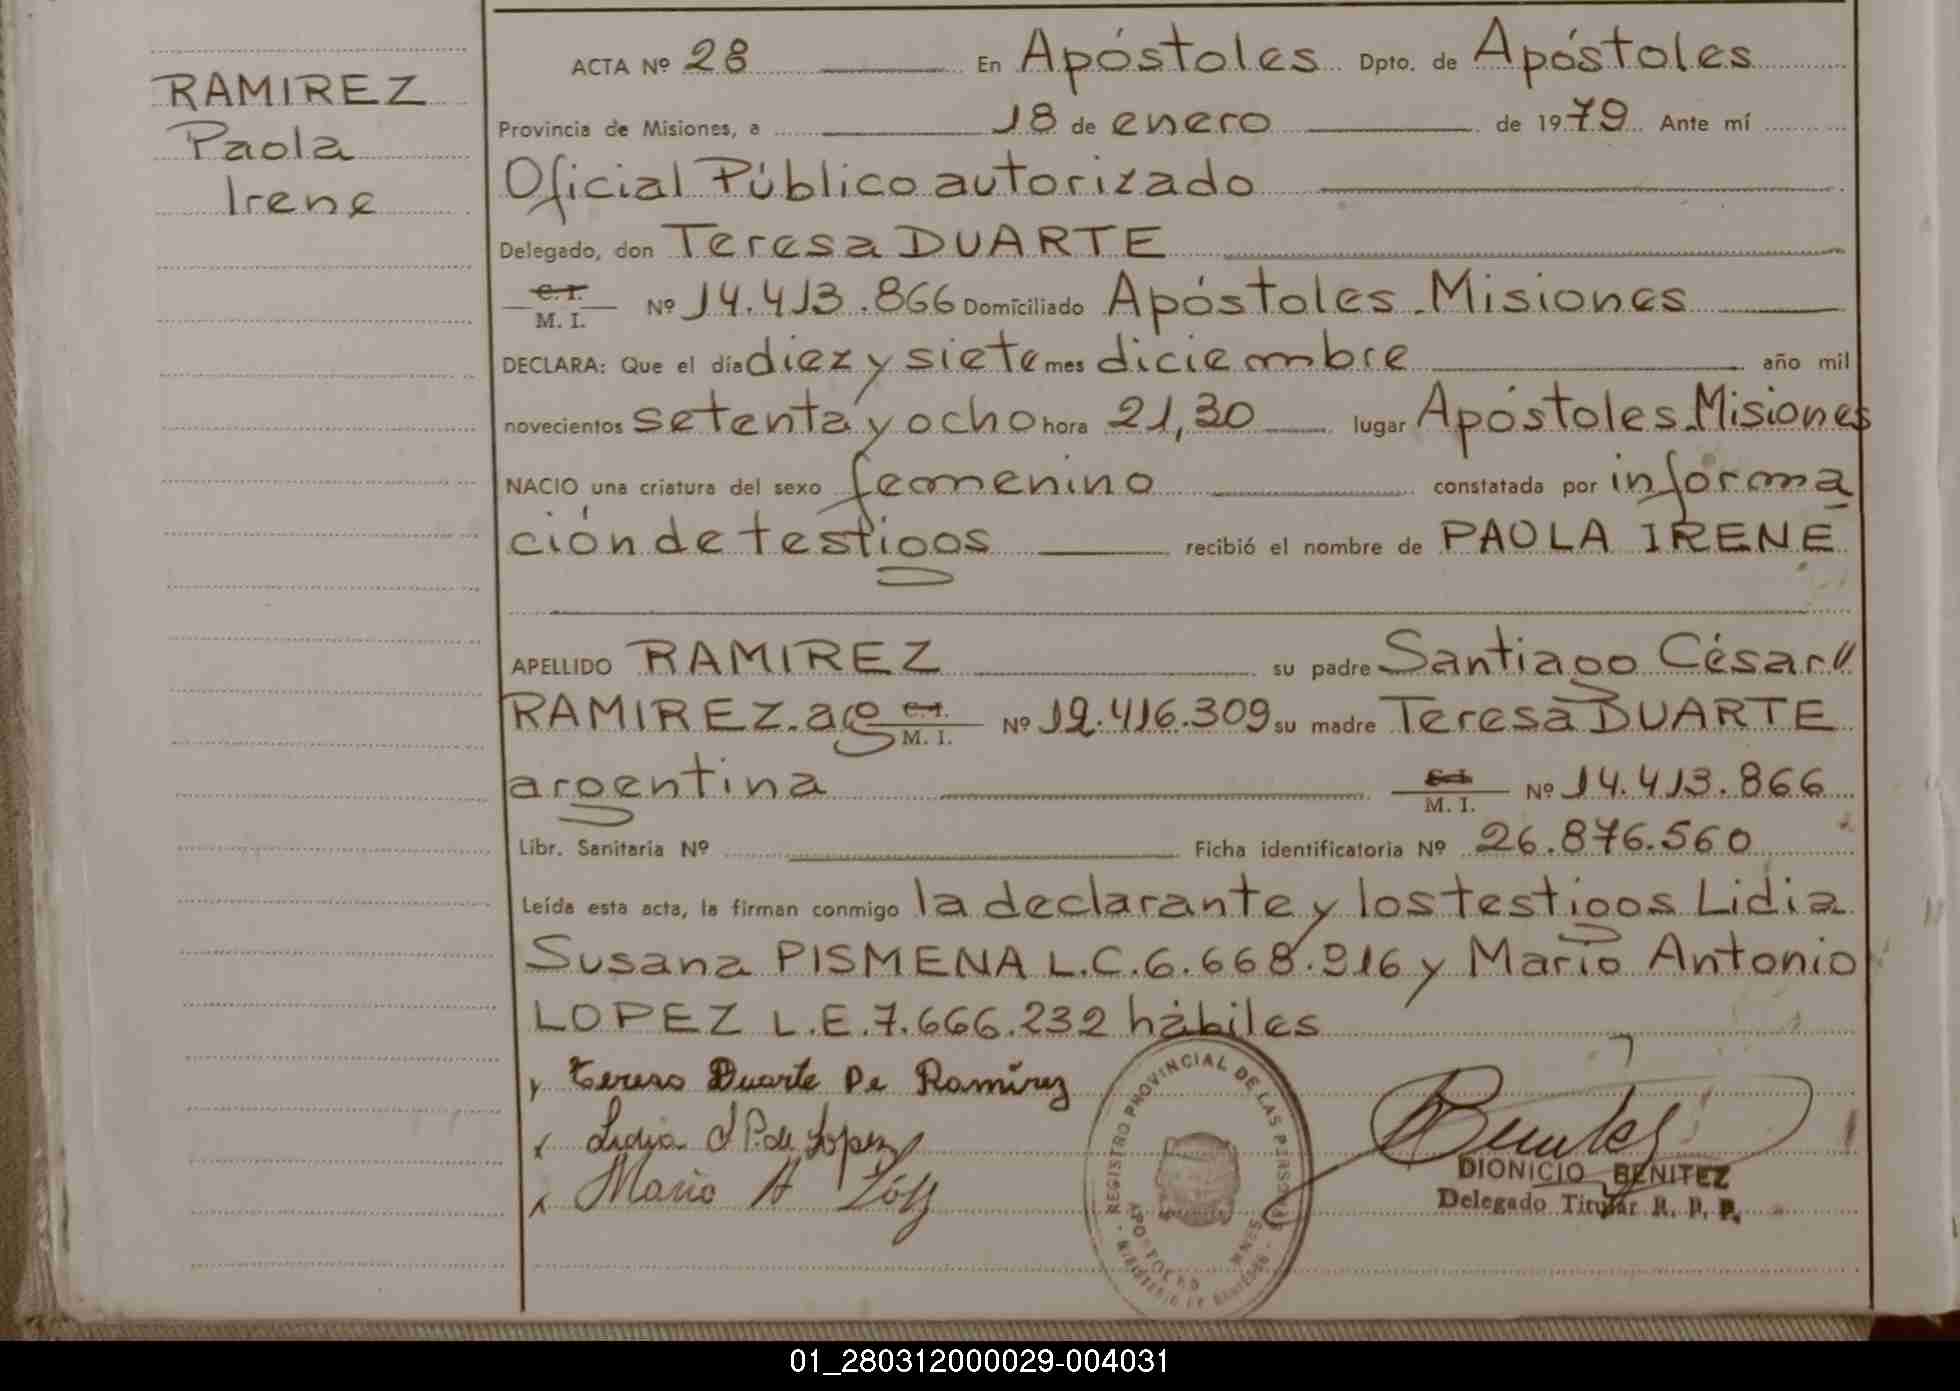 RAMIREZ
Paola
Irene
ACTA Nº 28 En Apóstoles Dpto. de Apóstoles
Provincia de Misiones, a 18 de enero de 1979 Ante mí
Oficial Público autorizado
Delegado, don Teresa DUARTE
C. I. M. I. Nº 14.413.866 Domiciliado Apóstoles Misiones
DECLARA: Que el día diez y siete mes diciembre año mil
novecientos setenta y ocho hora 21,30 lugar Apóstoles Misiones
NACIO una criatura del sexo femenino constatada por informa
ción de testigos recibió el nombre de PAOLA IRENE
APELLIDO RAMIREZ su padre Santiago César
RAMIREZ. arg C. I. M. I. Nº 12.416.309 su madre Teresa DUARTE
argentina C. I. M. I. Nº 14.413.866
Libr. Sanitaria Nº Ficha identificatoria Nº 26.876.560
Leída esta acta, la firman conmigo la declarante y los testigos Lidia
Susana PISMENA L.C. 6.668.916 y Mario Antonio
LOPEZ L.E. 7.666.232 hábiles
Teresa Duarte De Ramírez
Lidia S P. de Lopez
Mario A López
REGISTRO PROVINCIAL DE LAS PERSONAS
APOSTOLES MNES
MINISTERIO DE GOBIERNO
Benitez
DIONICIO BENITEZ
Delegado Titular R. P. P.
01_280312000029-004031